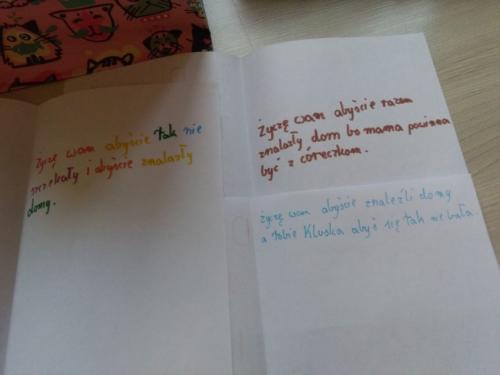 Życzę wam abyście tak nie
szczekały i abyście znalazły
domy.
Życzę wam abyście razem
znalazły dom bo mama powinna
być z córeczkom.
Życzę wam abyście znaleźli domy
a tobie Kluska abyś się tak nie bała.